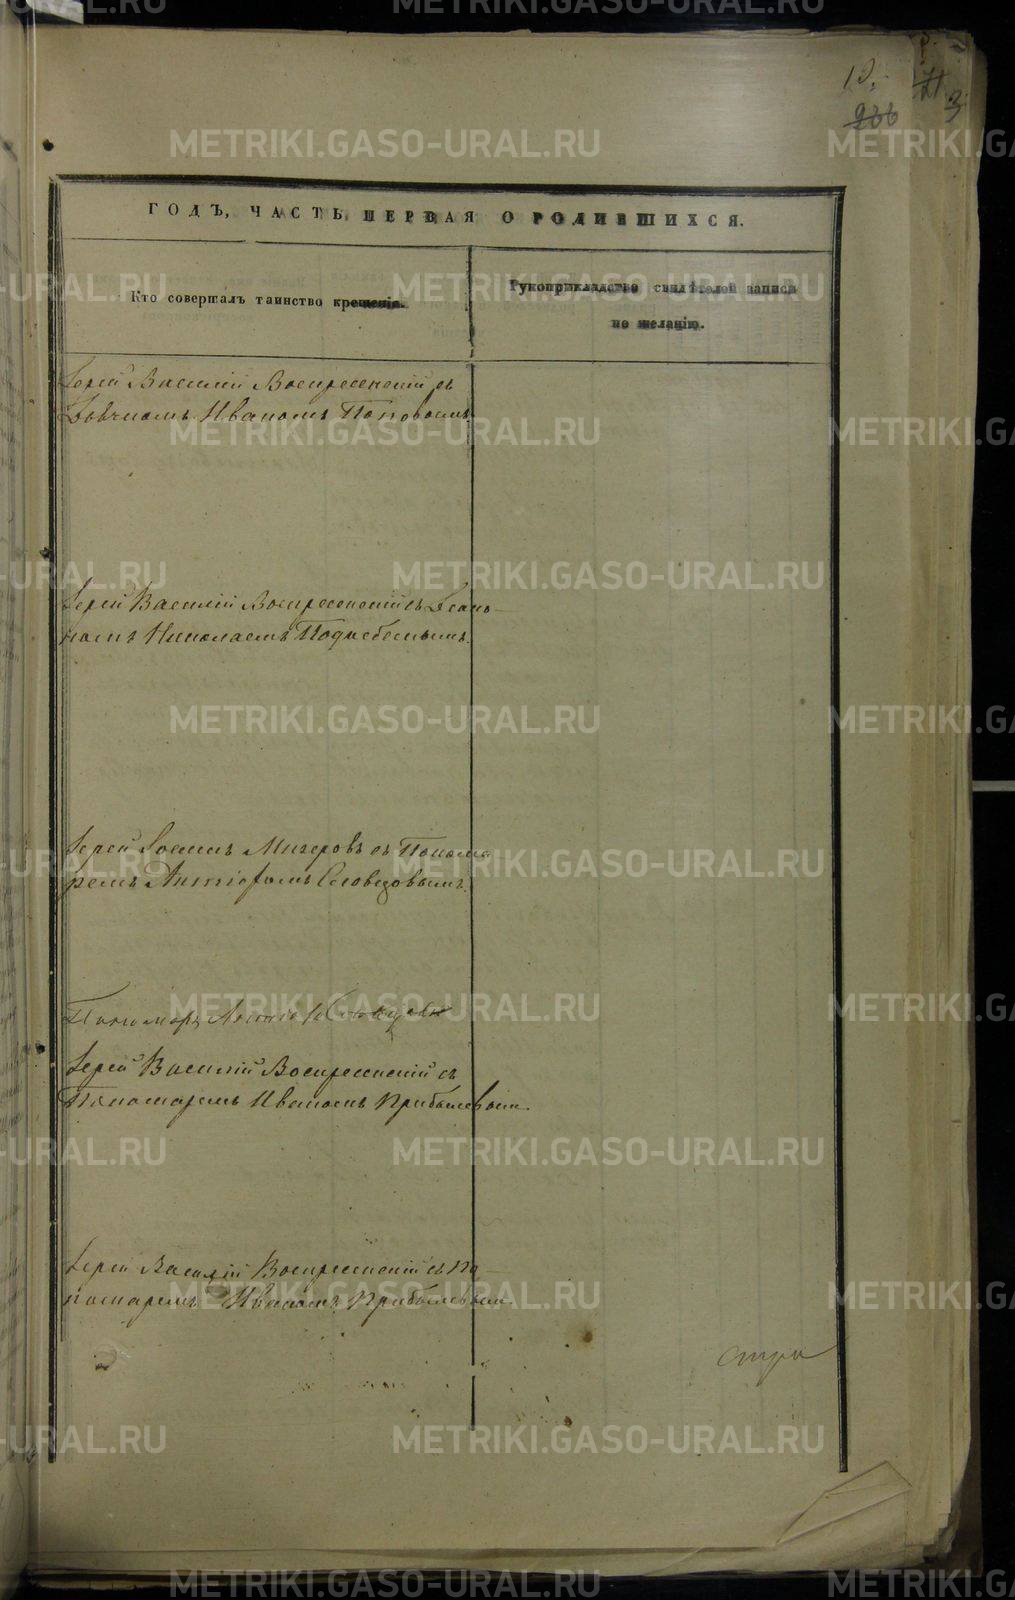 10.
266
3
ГОДЪ, ЧАСТЬ ПЕРВАЯ О РОДИВШИХСЯ.
Кто совершалъ таинство крещенія.
Рукоприкладство свидѣтелей записи
по желанію.
Іерей Василій Воскресенскій съ
Дьячкомъ Иваномъ Поповымъ.
Іерей Василій Воскресенскій съ Діако-
номъ Николаемъ
Іерей Мизеровъ съ Понома
ремъ Словцовымъ.
Пономарь Словцовъ
Іерей Василій Воскресенскій съ
Пономаремъ Иваномъ Прибылевымъ.
Іерей Василій Воскресенскій съ По-
номаремъ Иваномъ Прибылевымъ.
METRIKI.GASO-URAL.RU